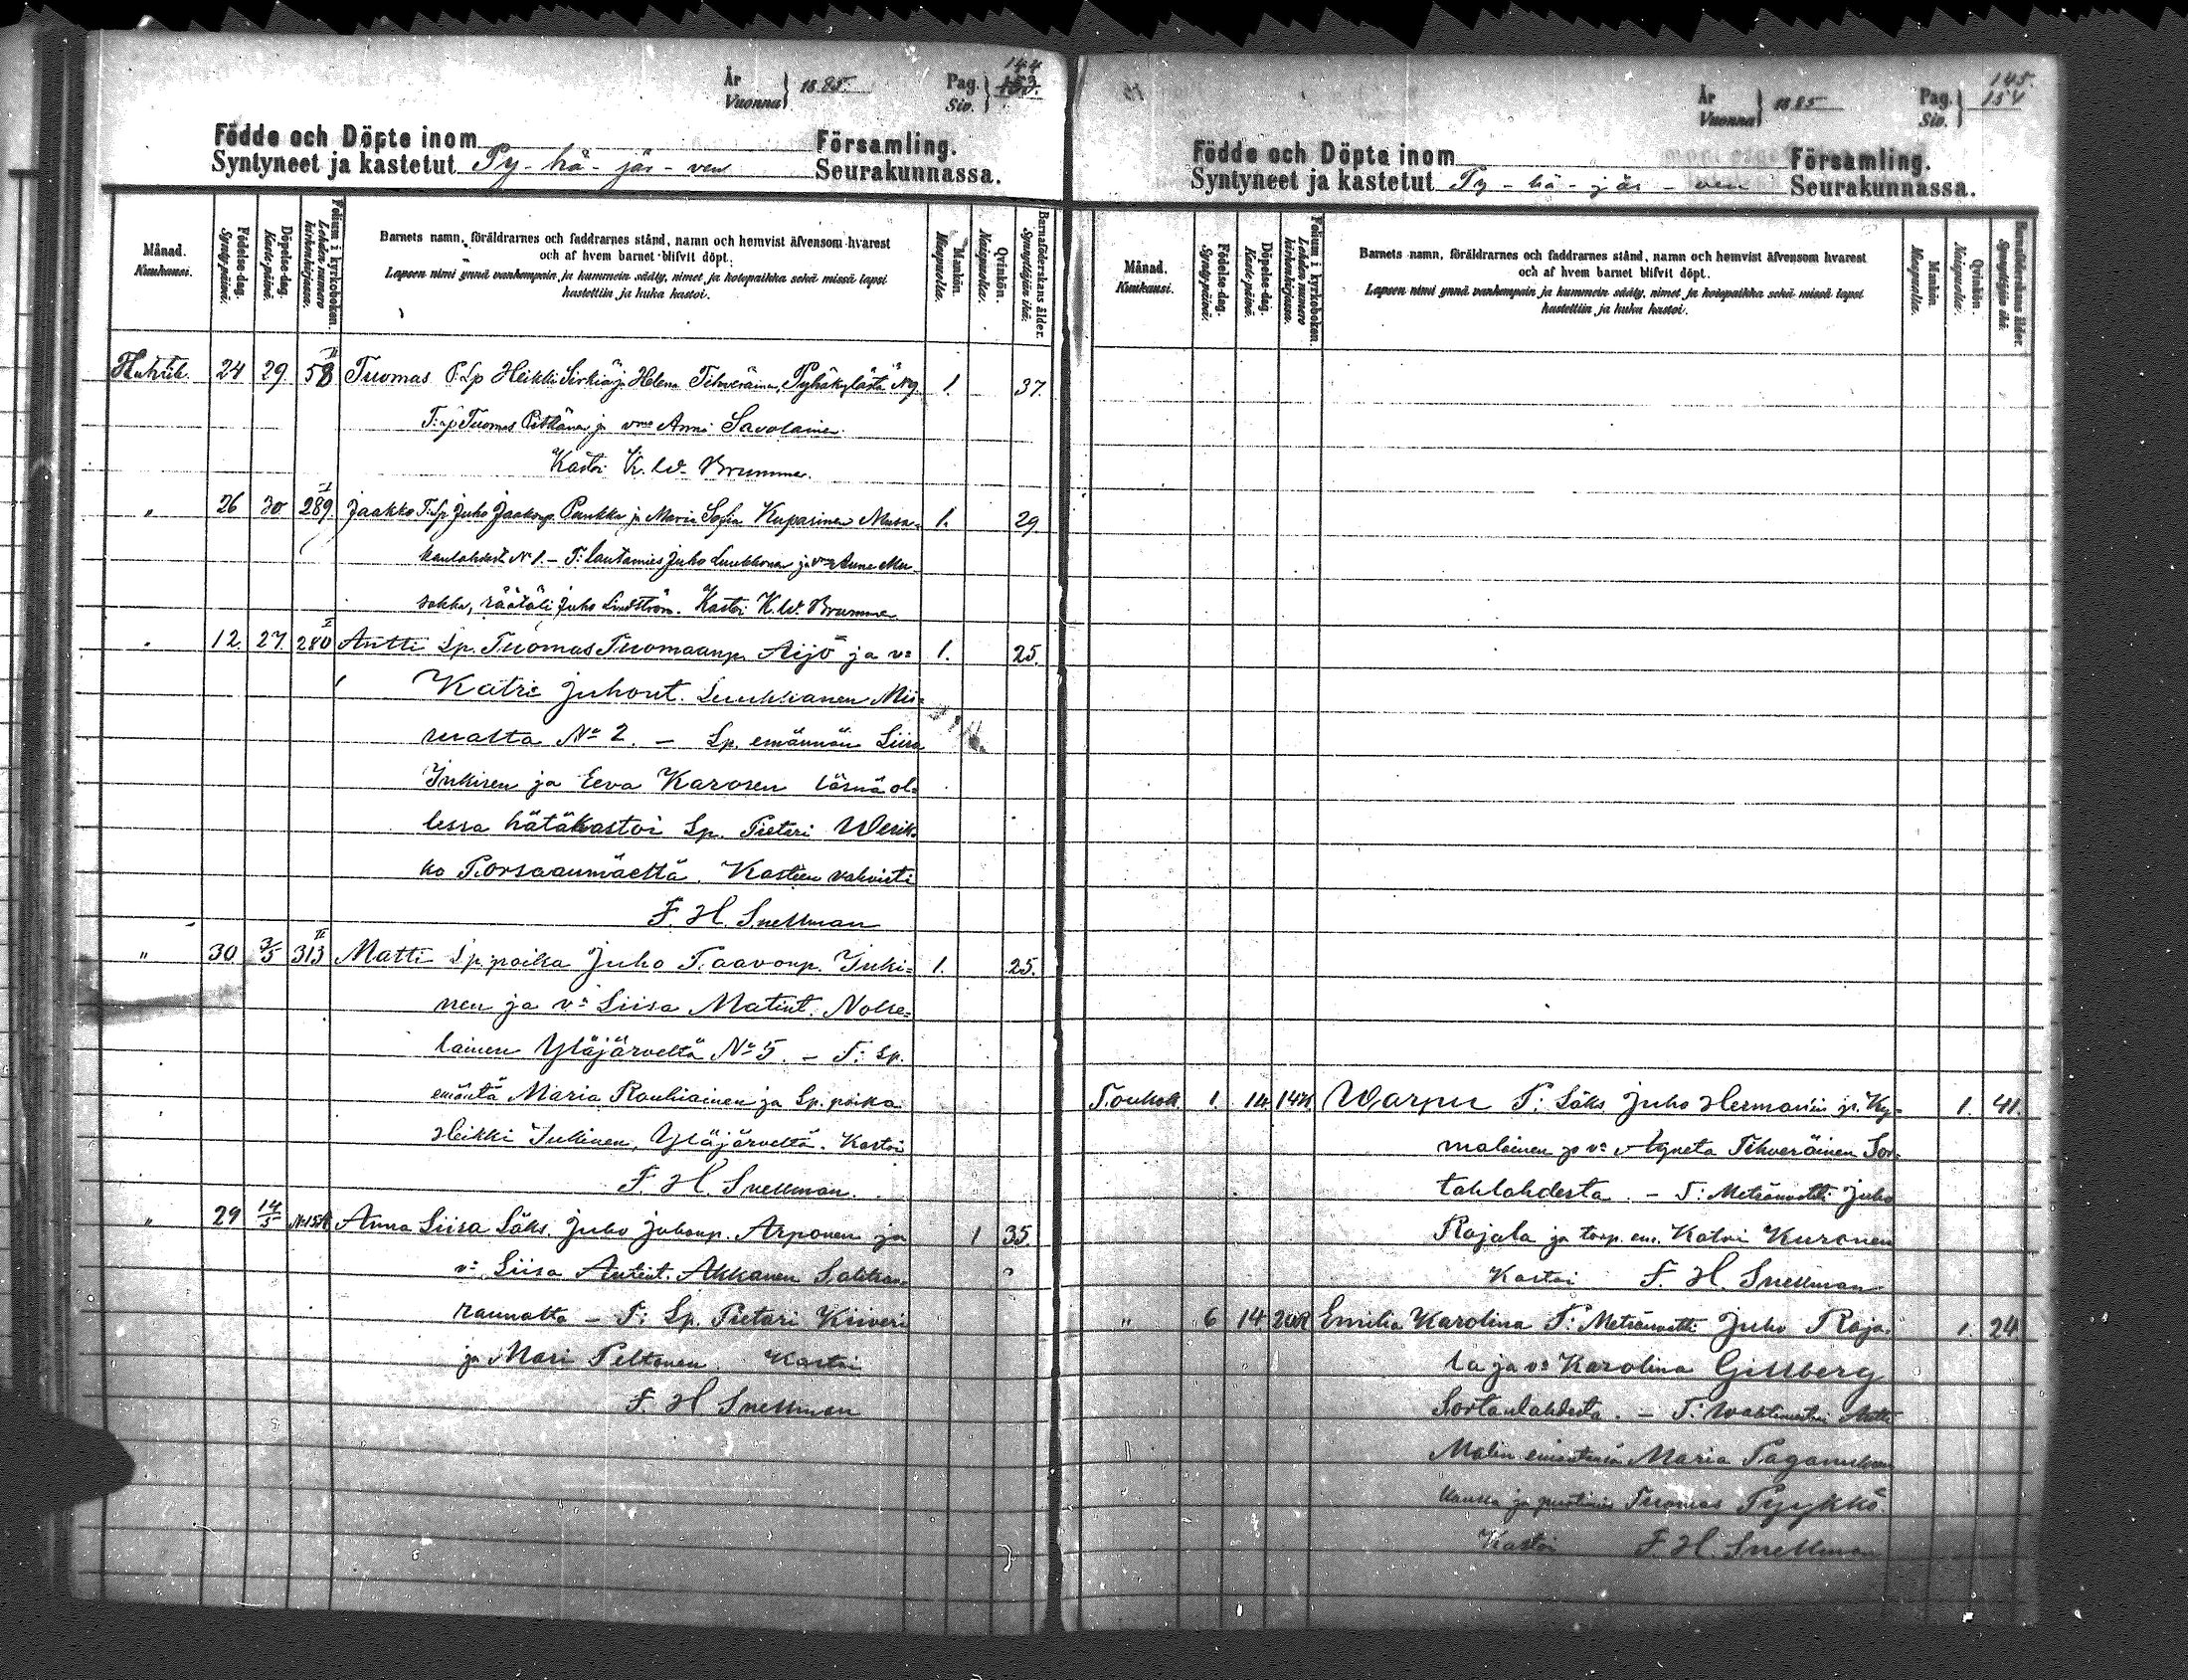 År
Vuonna } 1885.
Pag.
Siv. } 144
153.
Födde och Döpte inom Församling.
Syntyneet ja kastetut Py-hä-jär-ven Seurakunnassa.
Månad.
Kuukausi.
Födelse-dag.
Synty-päivä.
Döpelse-dag.
Kaste-päivä.
Folium i kyrkoboken.
Lehden numero kirkonkirjassa.
Barnets namn, föräldrarnes och faddrarnes stånd, namn och hemvist äfvensom hvarest
och af hvem barnet blifvit döpt.
Lapsen nimi ynnä vanhempain ja kummein sääty, nimet ja kotopaikka sekä missä lapsi
kastettiin ja kuka kastoi.
Mankön.
Miespuolta.
Qvinkön.
Naispuolta.
Barnaföderskans ålder.
Synnyttäjän ikä.
Huhtik. 24 29. II 58 Tuomas Heikki Sirkiä ja Helena Tihveräinen, Pyhäkylästä N 9. 1. 37.
Tuomas ja Anni Savolainen.
Kastoi K. W. Brumme.
" 26 30 I 289. Jaakko Juho Jaakonp. Paukku ja Maria Sofia Kuparinen Musa- 1. 29
kanlahdest N:1. – T: lautamies Juho Luukkonen ja Anna Mu-
sakka, räätäli Juho Lindström. Kastoi K. W. Brumme
" 12. 27. I 280 Antti Lp. Tuomas Tuomaanp. Äijö ja v: 1. 25.
Katri Juhont. Luukkanen Mii-
rualta No 2. – Lp. emännän Liisa
Inkisen ja Eeva Karosen läsnä ol-
lessa hätäkastoi Lp. Pietari Werik-
ko Porsaanmäeltä. Kasteen vahvisti
F. H. Snellman
" 30 3/5 II 313 Matti Lp. poika Juho Paavonp. Inki- 1. 25.
nen ja v: Liisa Matint. Nolse-
lainen Yläjärveltä No 5. – T: Lp.
emäntä Maria Rouhiainen ja Lp. poika
Heikki Inkinen, Yläjärveltä. Kastoi
F. H. Snellman.
" 29 14/5 Anna Liisa Läks. Juho Juhonp. Arponen ja 1 35.
v: Liisa Antint. Akkanen
rannalta – T: Lp. Pietari Kiiveri
ja Mari Peltonen. Kastoi
F. H. Snellman
År
Vuonna } 1885
Pag.
Siv. } 145.
154
Födde och Döpte inom Församling.
Syntyneet ja kastetut Py-hä-jär-ven Seurakunnassa.
Månad.
Kuukausi.
Födelse-dag.
Synty-päivä.
Döpelse-dag.
Kaste-päivä.
Folium i kyrkoboken.
Lehden numero kirkonkirjassa.
Barnets namn, föräldrarnes och faddrarnes stånd, namn och hemvist äfvensom hvarest
och af hvem barnet blifvit döpt.
Lapsen nimi ynnä vanhempain ja kummein sääty, nimet ja kotopaikka sekä missä lapsi
kastettiin ja kuka kastoi.
Mankön.
Miespuolta.
Qvinkön.
Naispuolta.
Barnaföderskans ålder.
Synnyttäjän ikä.
Toukok. 1. 14. Warpu T: Läks. Juho Hermannin p. Ky- 1. 41.
malainen ja v: Agneta Tihveräinen Sor-
tanlahdesta. – T: Metsänvahti Juho
Rajala ja torp. em. Katri Kuronen
Kastoi F. H. Snellman
" 6 14 Emilia Karolina T: Metsänvahti Juho Raja- 1. 24
la ja v: Karolina Gillberg
Sortanlahdesta. – T: Wahtimestari Antti
Malin emäntensä Maria
kanssa ja Tuomas Pyykkö.
Kastoi F. H. Snellman